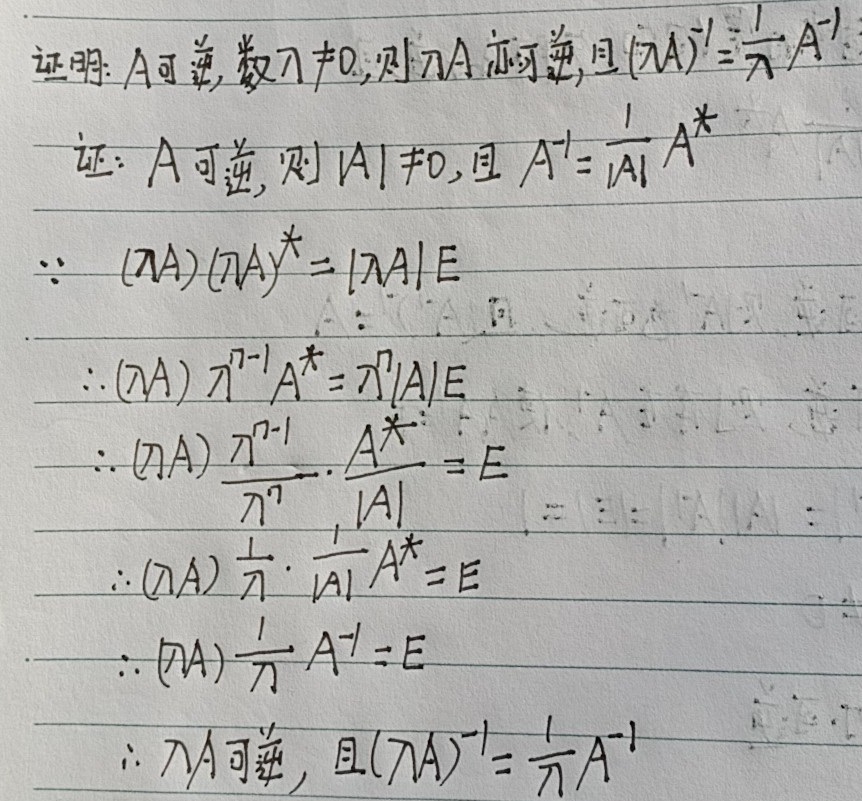 证明: A可逆, 数λ≠0, 则λA亦可逆, 且(λA)⁻¹=1/λ A⁻¹
证: A可逆, 则|A|≠0, 且 A⁻¹=1/|A| A*
∵ (λA)(λA)*=|λA|E
∴(λA) λⁿ⁻¹A*=λⁿ|A|E
∴(λA) λⁿ⁻¹/λⁿ · A*/|A| = E
∴(λA) 1/λ · 1/|A| A*=E
∴(λA) 1/λ A⁻¹=E
∴ λA可逆, 且(λA)⁻¹=1/λ A⁻¹